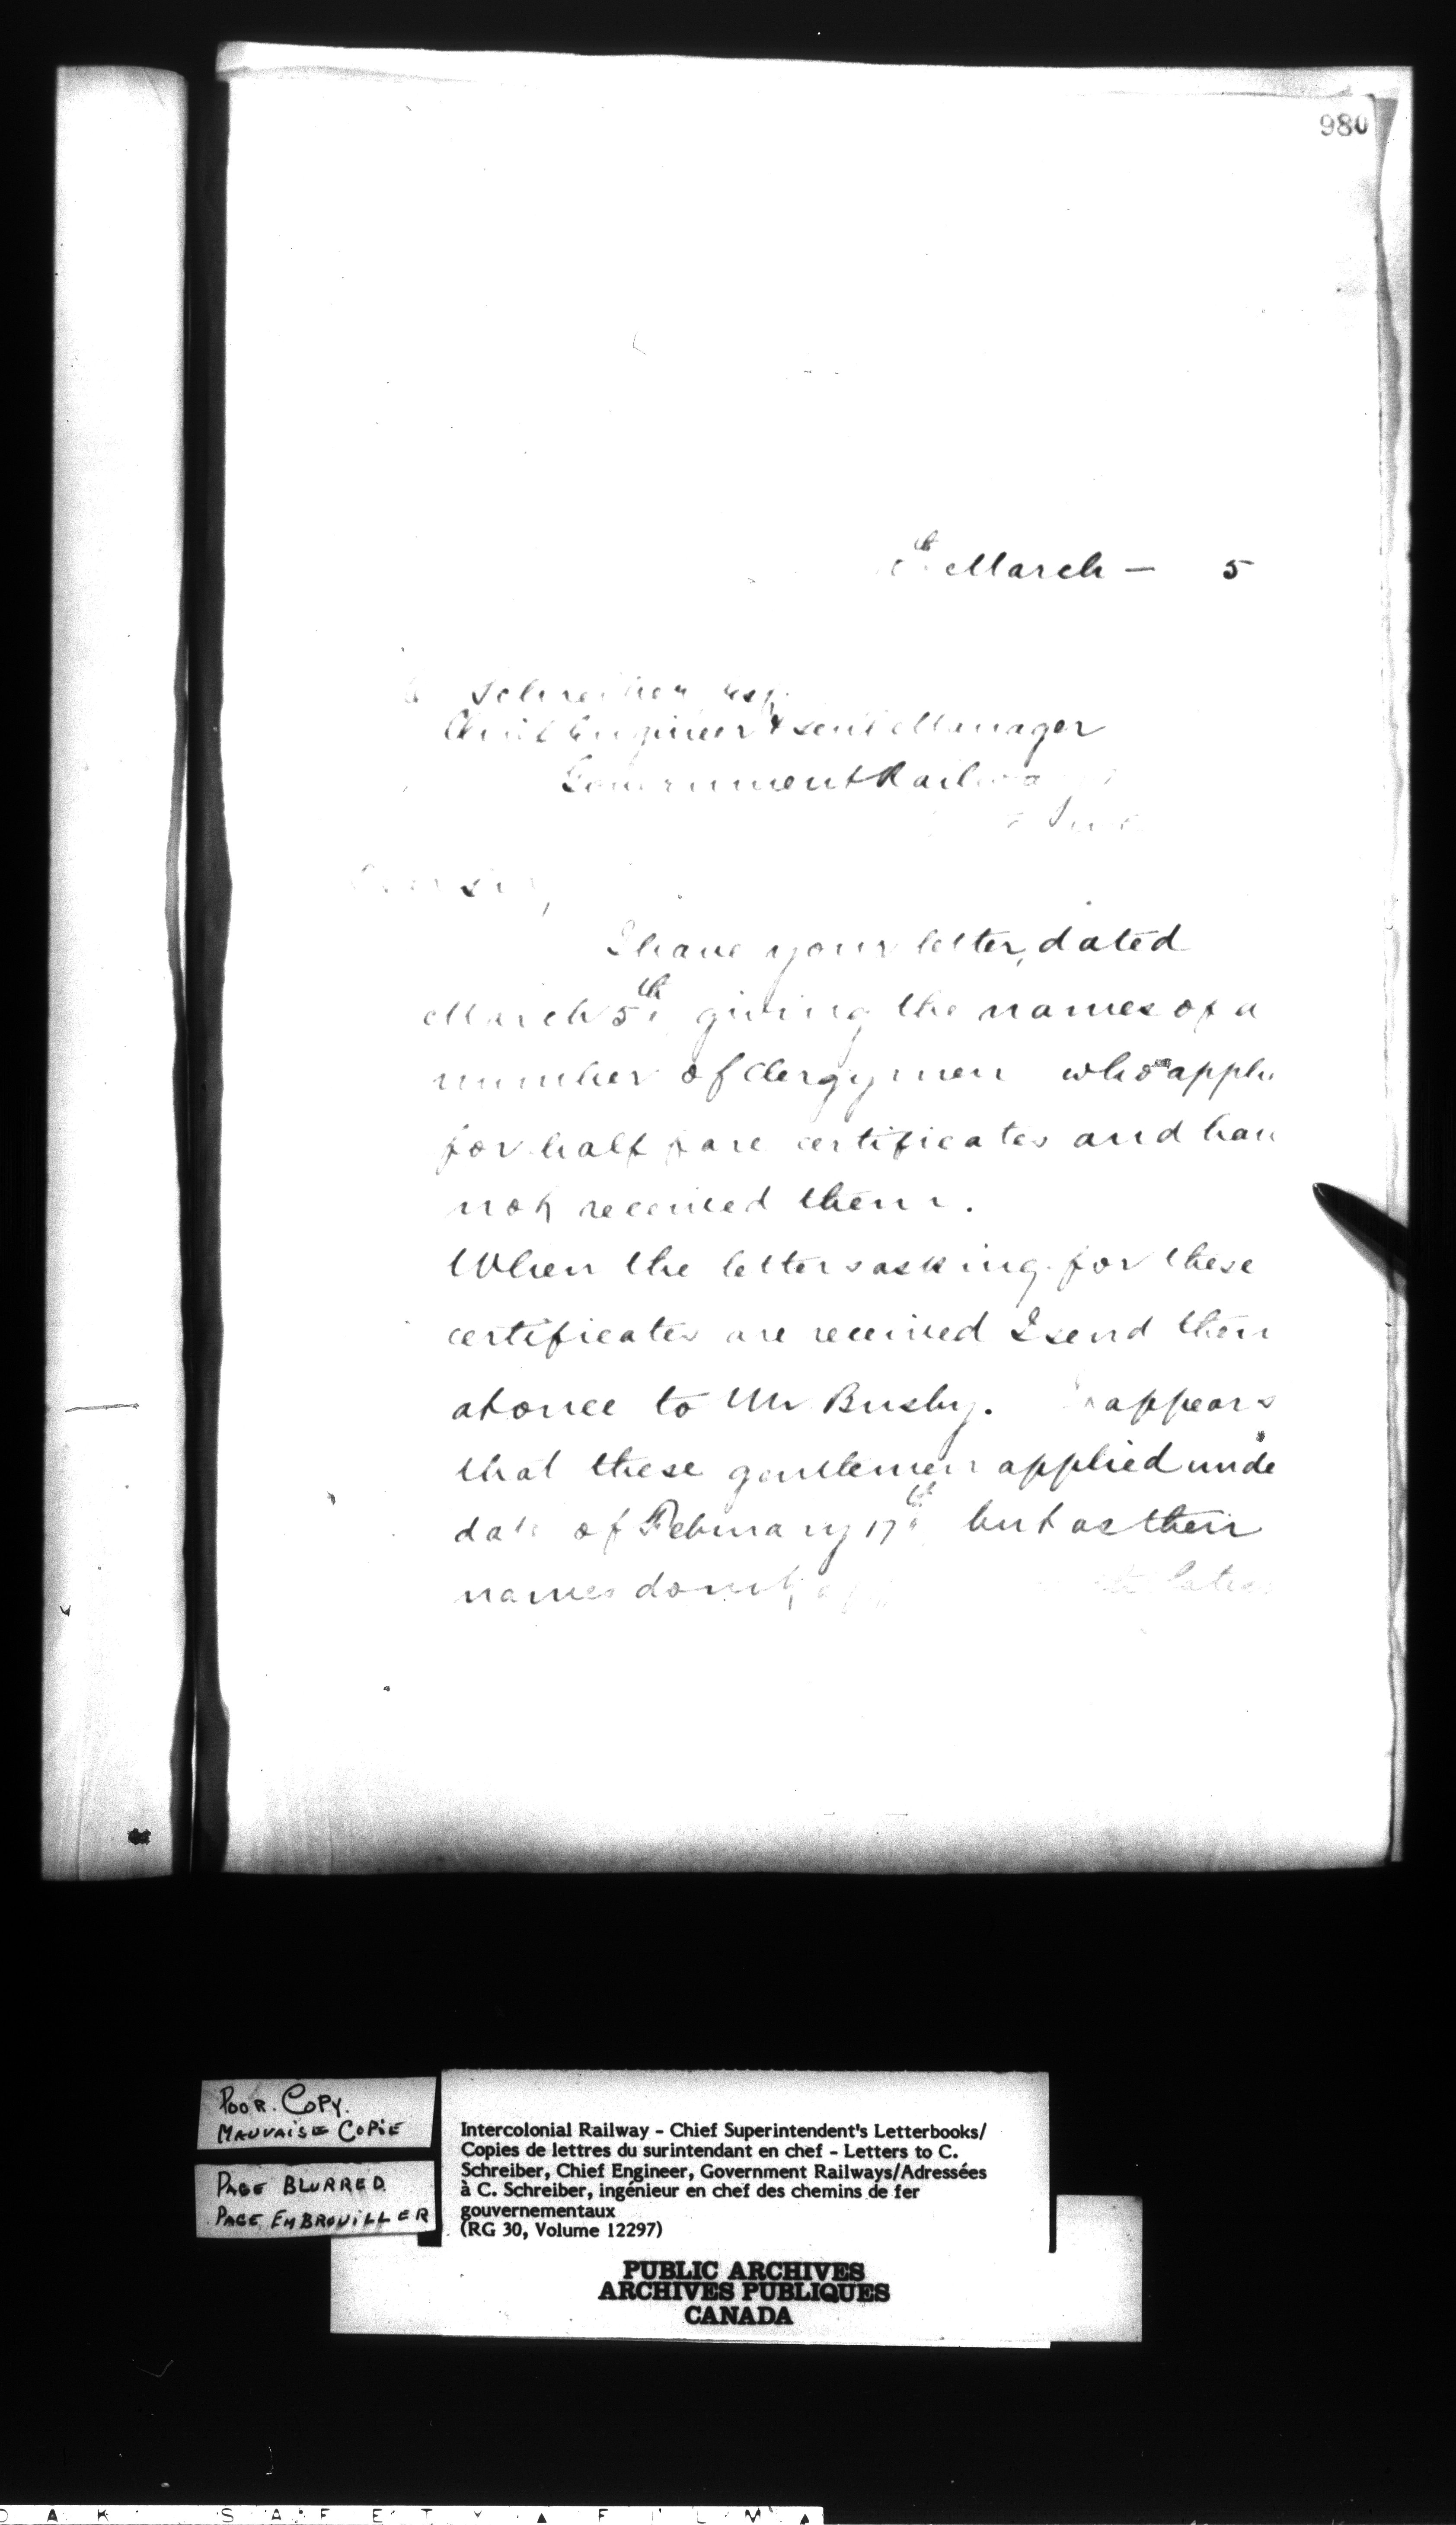 980
th March — 5
Schreiber Esq
Chief Engineer & Genl Manager
Government Railwa
Dear Sir,
I have your letter, dated
March 5th giving the names of a
number of Clergymen who applie
for half fare certificates and hav
not received them.
When the letters asking for these
certificates are received I send them
at once to Mr Busby. It appears
that these gentlemen applied unde
date of February 17th but as their
names do not
POOR. COPY.
MAUVAISE COPIE
PAGE BLURRED
PAGE EMBROUILLER
Intercolonial Railway - Chief Superintendent's Letterbooks/
Copies de lettres du surintendant en chef - Letters to C.
Schreiber, Chief Engineer, Government Railways/Adressées
à C. Schreiber, ingénieur en chef des chemins de fer
gouvernementaux
(RG 30, Volume 12297)
PUBLIC ARCHIVES
ARCHIVES PUBLIQUES
CANADA
D A K S A F E T Y ▲ F I L M ▲